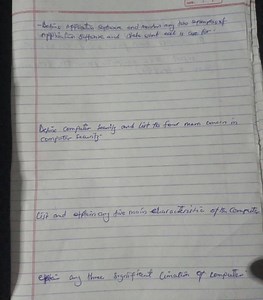 -Define Application Software and mention any five examples of
Application Software and state what each is use for-
Define Computer Security and list the four main in
Computer Security-
List and explain any five main Characteristics of the Computer
explain any three Significant Limitation of Computer